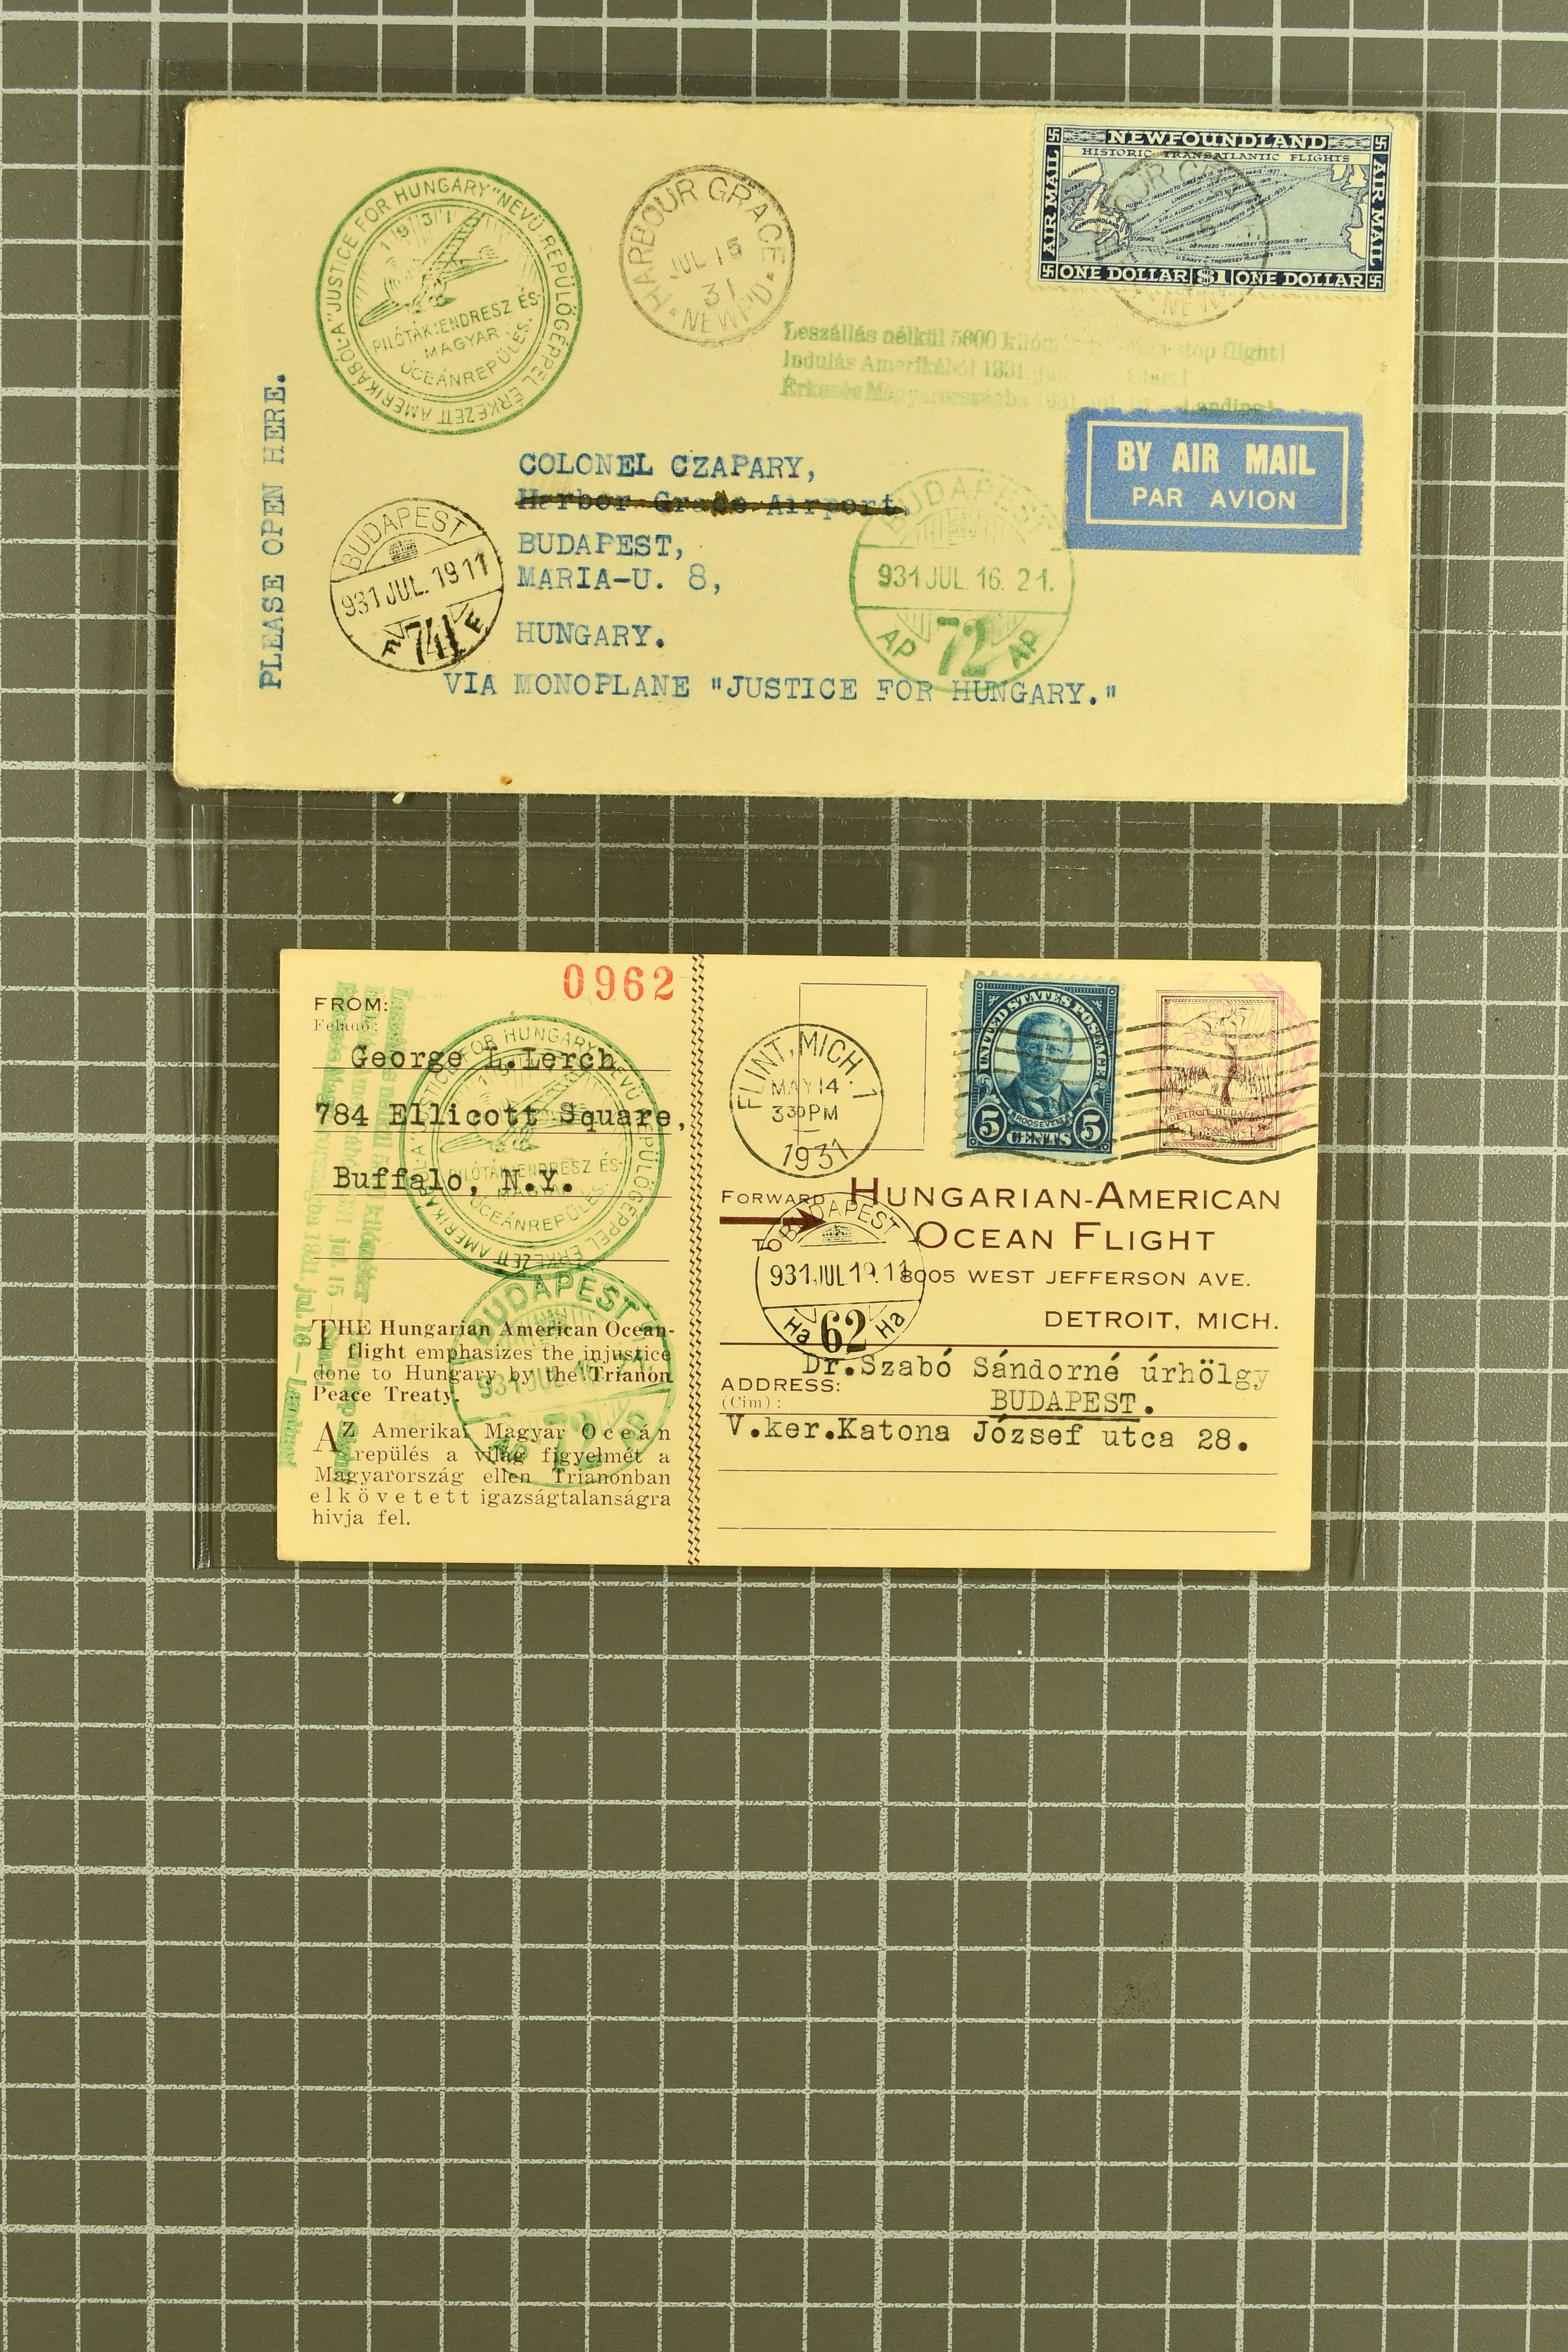 "JUSTICE FOR HUNGARY" NEVÜ REPÜLŐGÉPPEL ÉRKEZETT AMERIKÁBÓL A
1931
PILÓTÁK: ENDRESZ ÉS
MAGYAR
ÓCEÁNREPÜLÉS.
HARBOUR GRACE
JUL 15
31
NEWFD
NEWFOUNDLAND
HISTORIC TRANSATLANTIC FLIGHTS
AIR MAIL
AIR MAIL
LABRADOR
QUEBEC
NEWFOUNDLAND
ST. JOHN'S
ONE DOLLAR $1 ONE DOLLAR
Leszállás nélkül 5600 stop flight!
Indulás Amerikából 1931 jul Start!
Érkezés Magyarországba 1931 jul. 16 — Landing!
BY AIR MAIL
PAR AVION
PLEASE OPEN HERE.
COLONEL CZAPARY,
Harbor Grace Airport,
BUDAPEST,
MARIA-U. 8,
HUNGARY.
VIA MONOPLANE "JUSTICE FOR HUNGARY."
BUDAPEST
931 JUL. 19 11
74
BUDAPEST
931 JUL. 16. 21.
AP 72 AP
0962
FROM:
Feladó:
George L.Lerch
784 Ellicott Square,
Buffalo, N.Y.
FOR HUNGARY" NEVÜ REPÜLŐGÉPPEL ÉRKEZETT AMERIKÁBÓL A
PILÓTÁK: ENDRESZ ÉS
ÓCEÁNREPÜLÉS.
jul. 15
1931. jul. 16 — Landing!
BUDAPEST
931 JUL. 16. 21
72
THE Hungarian American Ocean-
flight emphasizes the injustice
done to Hungary by the Trianon
Peace Treaty.
AZ Amerikai Magyar Oceán
repülés a világ figyelmét a
Magyarország ellen Trianonban
elkövetett igazságtalanságra
hivja fel.
FLINT, MICH. 1
MAY 14
330 PM
1931
UNITED STATES POSTAGE
ROOSEVELT
5 CENTS 5
DETROIT-BUDAPEST
FORWARD
TO
HUNGARIAN-AMERICAN
OCEAN FLIGHT
8005 WEST JEFFERSON AVE.
DETROIT, MICH.
BUDAPEST
931 JUL 19. 11
Ha 62 Ha
Dr.Szabó Sándorné úrhölgy
ADDRESS:
(Cim):
BUDAPEST.
V.ker.Katona József utca 28.